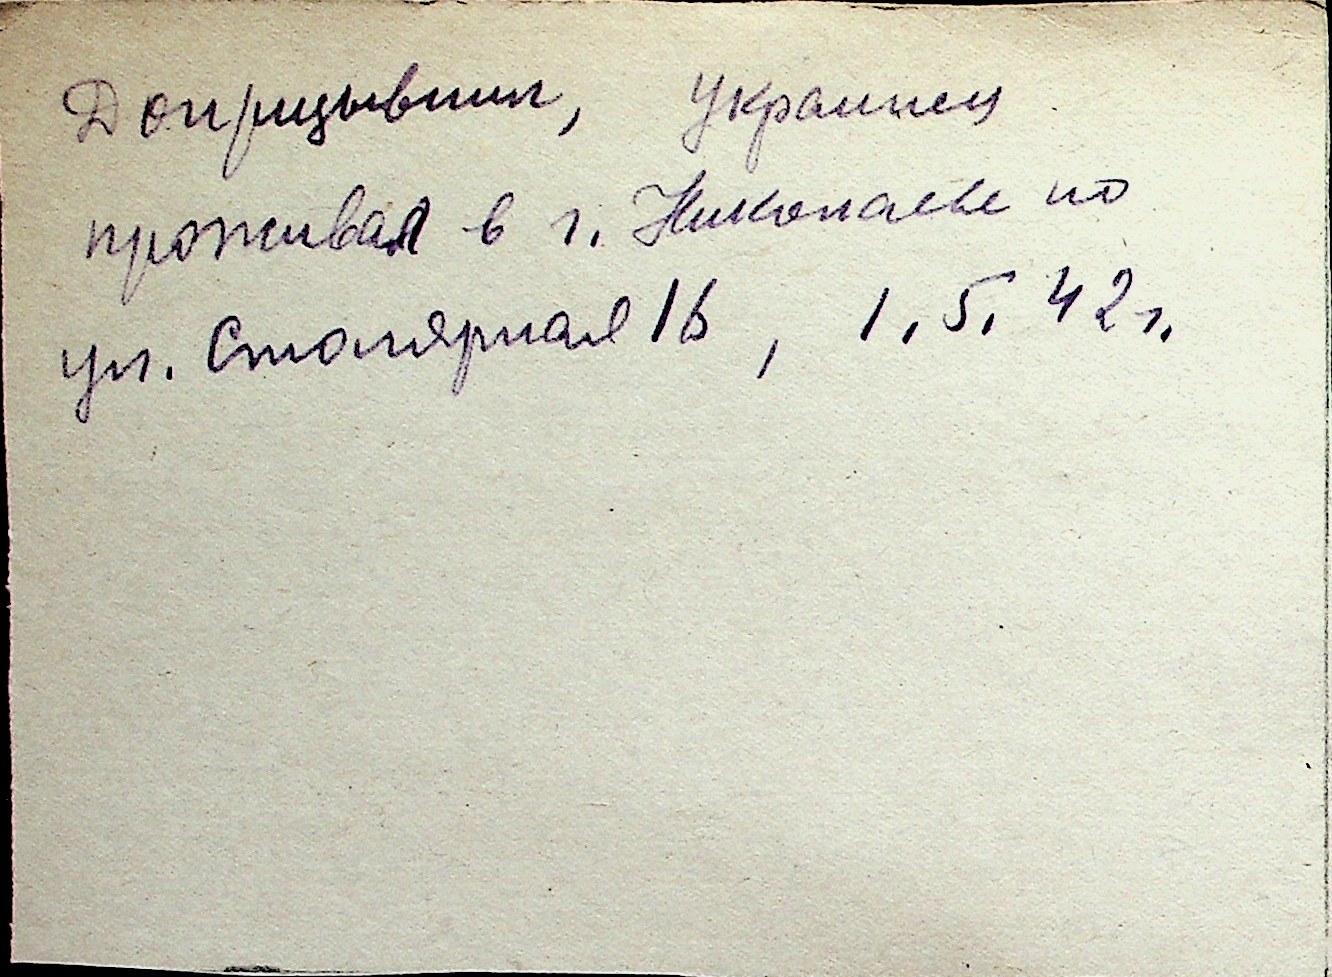 Допризывник, украинец
проживал в г. Николаеве по
ул. Столярная 16, 1.5.42 г.